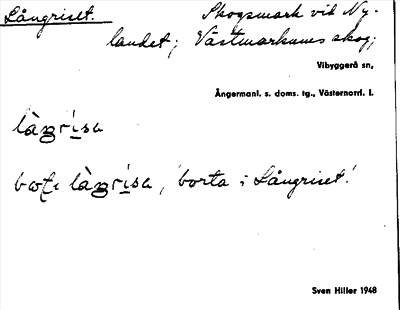 Långriset. Skogsmark vid Ny-
landet; Västmarkums skog;
Vibyggerå sn,
Ångermanl. s. doms. tg., Västernorrl. l.
làŋrisa
làŋrisa, 'borta i Långriset'.
Sven Hiller 1948